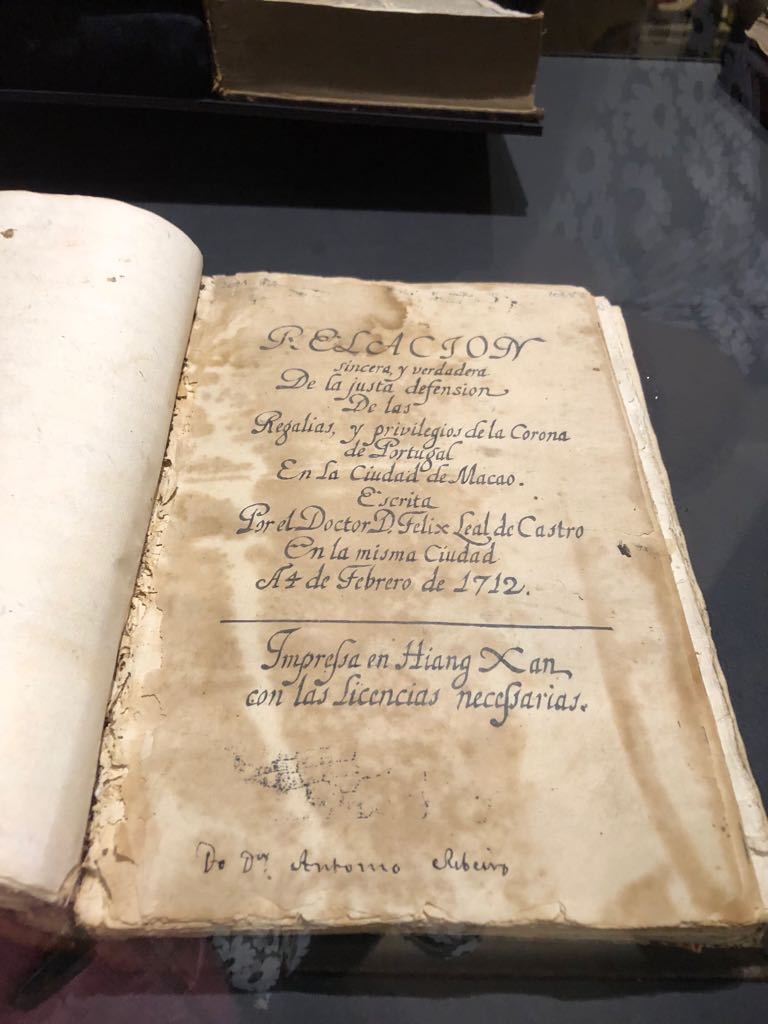 RELACION
sincera, y verdadera
De la justa defension
De las
Regalias, y privilegios de la Corona
de Portugal
En la Ciudad de Macao.
Escrita
Por el Doctor D. Felix Leal de Castro
En la misma Ciudad
A 4 de Febrero de 1712.
Impreſsa en Hiang Xan
con las Licencias neceſsarias.
Do Dor Antonio Ribeiro